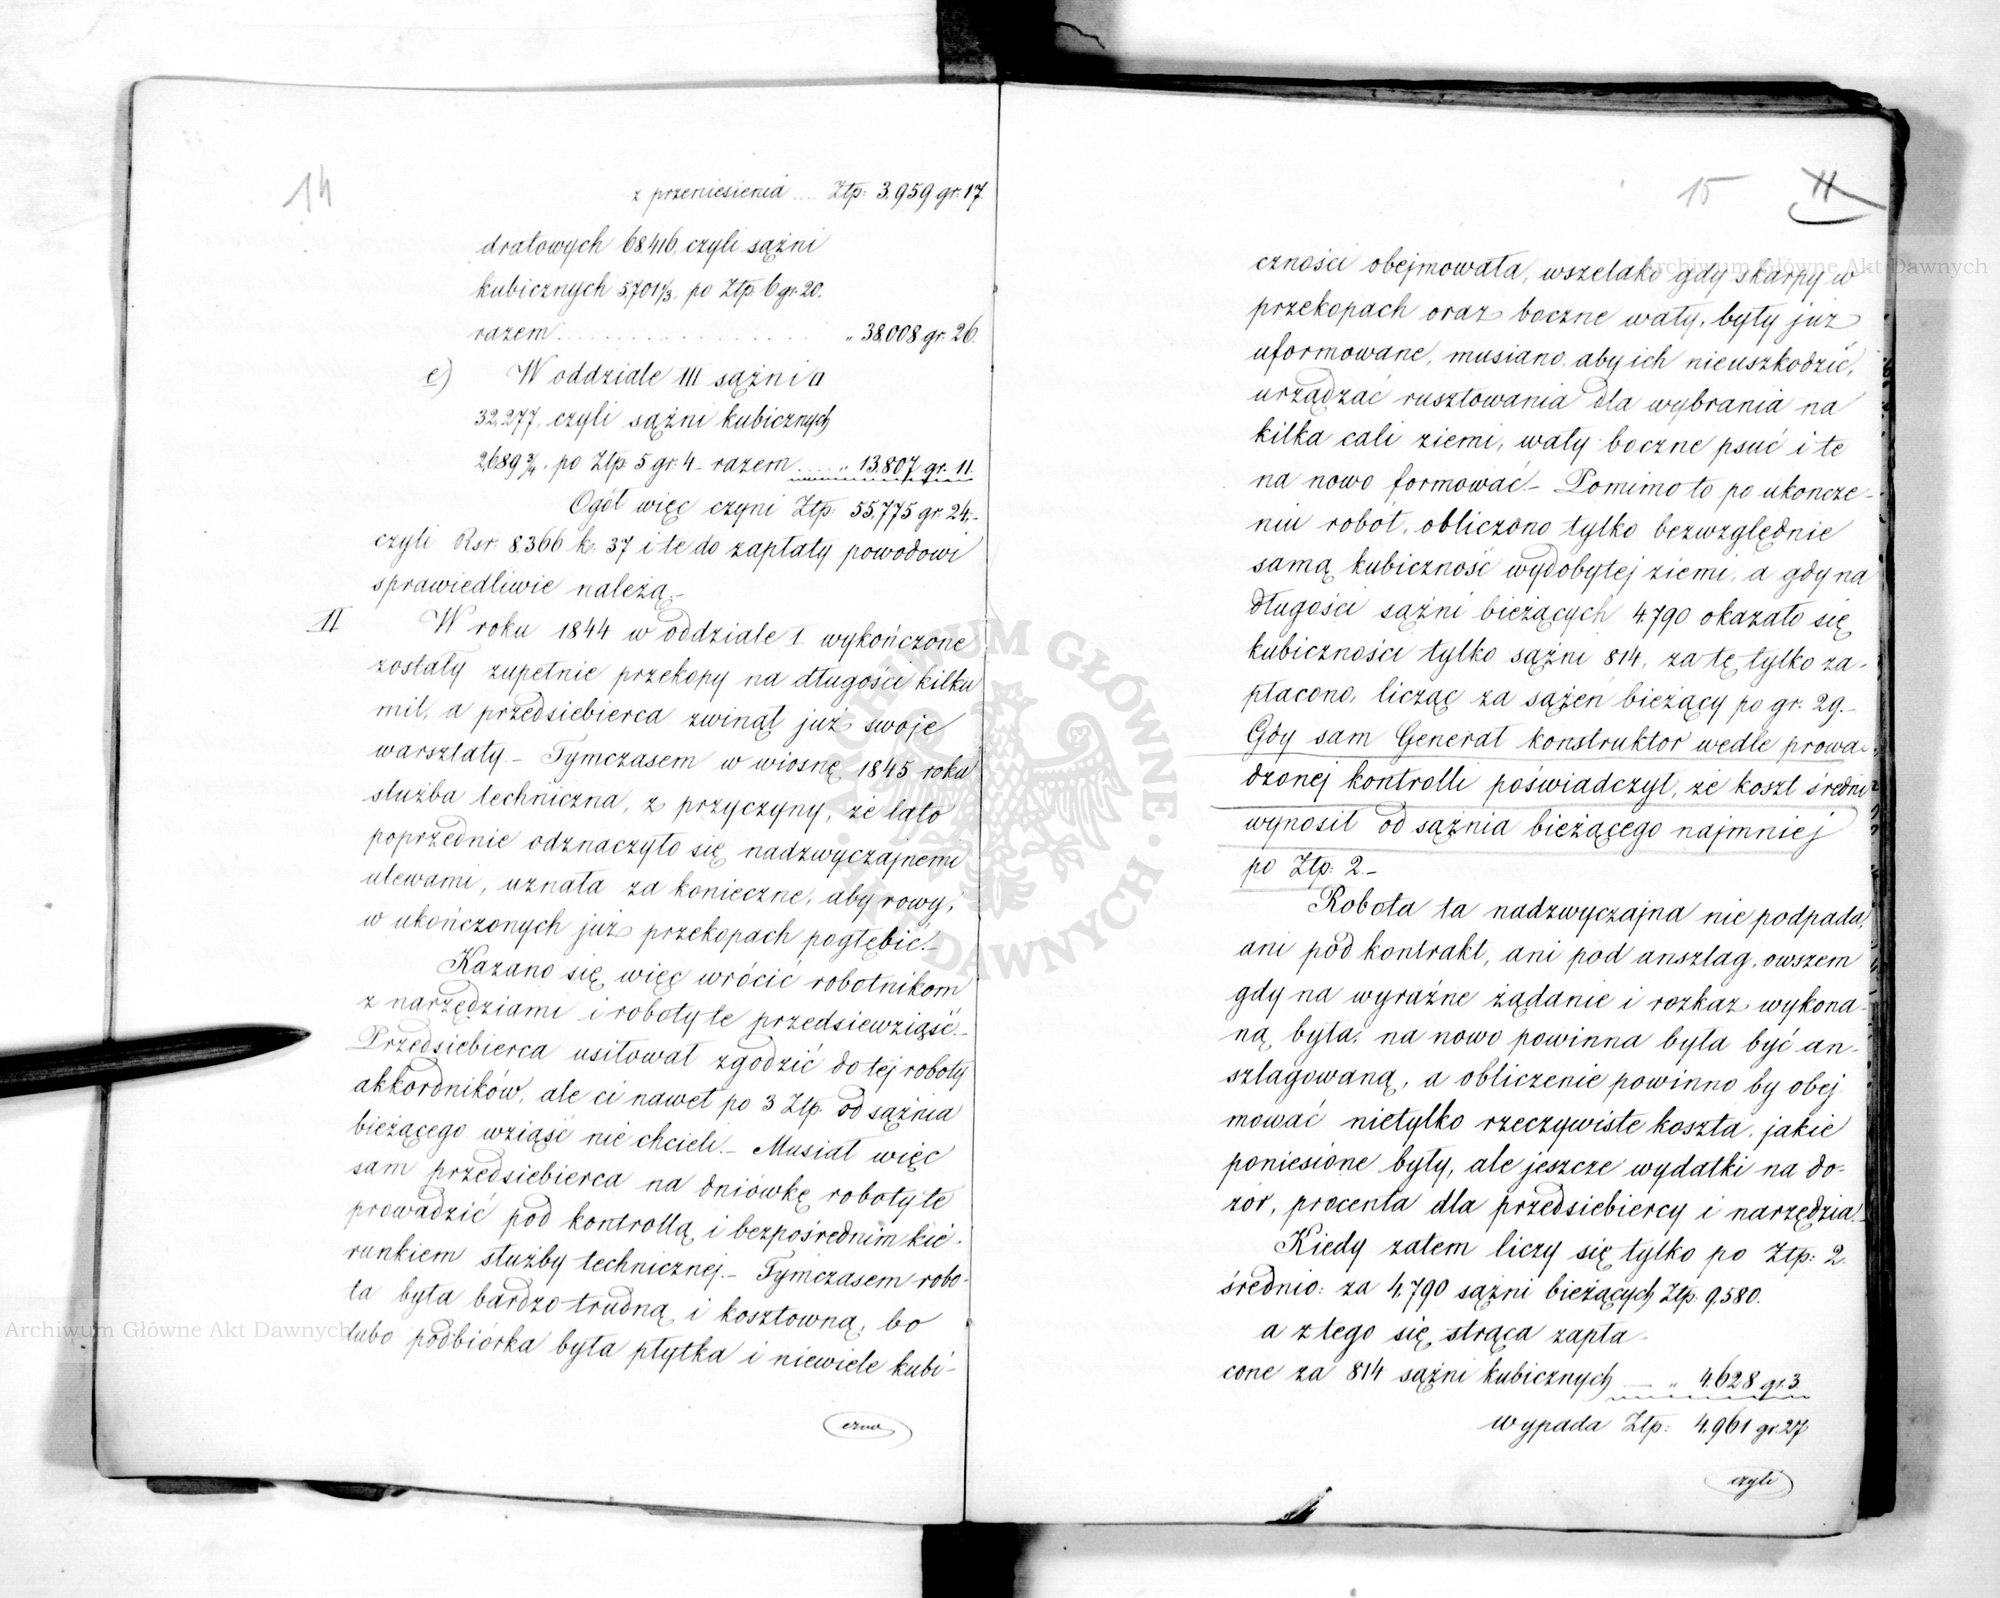 14
z przeniesienia .... Ztp: 3,959 gr. 17.
dratowych 68,416, czyli sążni
kubicznych 5,701⅓, po Ztp. 6 gr. 20.
razem . . . . . . . . . . . . . . . . „ 38,008 gr. 26.
c) W oddziale III sążni □
32,277, czyli sążni kubicznych
2,689¾, po Ztp 5 gr. 4 – razem ..... „ 13,807 gr. 11.
Ogół więc czyni Ztp: 55,775 gr. 24,–
czyli Rsr. 8366 k. 37 i te do zapłaty powodowi
sprawiedliwie należą.–
II W roku 1844 w oddziale I wykończone
zostały zupełnie przekopy na długości kilku
mil, a przedsiebierca zwinął już swoje
warsztaty.– Tymczasem w wiosnę 1845 roku
służba techniczna, z przyczyny, że lato
poprzednie odznaczyło się nadzwyczajnemi
ulewami, uznała za konieczne, aby rowy,
w ukończonych już przekopach pogłębić.–
Kazano się więc wrócić robotnikom
z narzędziami i roboty te przedsiewziąść.–
Przedsiebierca usiłował zgodzić do tej roboty
akkordników, ale ci nawet po 3 Ztp. od sążnia
bieżącego wziąść nie chcieli.– Musiał więc
sam przedsiebierca na dniówkę roboty te
prowadzić pod kontrollą i bezpośrednim kie-
runkiem służby technicznej.– Tymczasem robo-
ta była bardzo trudną i kosztowną, bo
lubo podbiórka była płytka i niewiele kubi-
czno
15
11
czności obejmowała, wszelako gdy skarpy w
przekopach oraz boczne wały, były już
uformowane, musiano, aby ich nieuszkodzić,
urządzać rusztowania dla wybrania na
kilka cali ziemi, wały boczne psuć i te
na nowo formować.– Pomimo to po ukończe-
niu robót, obliczono tylko bezwzględnie
samą kubiczność wydobytej ziemi, a gdy na
długości sążni bieżących 4,790 okazało się
kubiczności tylko sążni 814, za tę tylko za-
płacono, licząc za sążeń bieżący po gr. 29.–
Gdy sam Generał konstruktor wedle prowa-
dzonej kontrolli poświadczył, że koszt średni
wynosił od sążnia bieżącego najmniej
po Ztp: 2.–
Robota ta nadzwyczajna nie podpada,
ani pod kontrakt, ani pod anszlag, owszem
gdy na wyraźne żądanie i rozkaz wykona-
ną była, na nowo powinna była być an-
szlagowaną, a obliczenie powinno by obej-
mować nietylko rzeczywiste koszta, jakie
poniesione były, ale jeszcze wydatki na do-
zór, procenta dla przedsiebiercy i narzędzia.–
Kiedy zatem liczy się tylko po Ztp: 2.
średnio: za 4,790 sążni bieżących Ztp: 9,580.
a z tego się strąca zapła-
cone za 814 sążni kubicznych — „ 4,628 gr. 3.
wypada Ztp: 4,961 gr. 27
czyli
Archiwum Główne Akt Dawnych
Archiwum Główne Akt Dawnych
ARCHIWUM GŁÓWNE AKT DAWNYCH